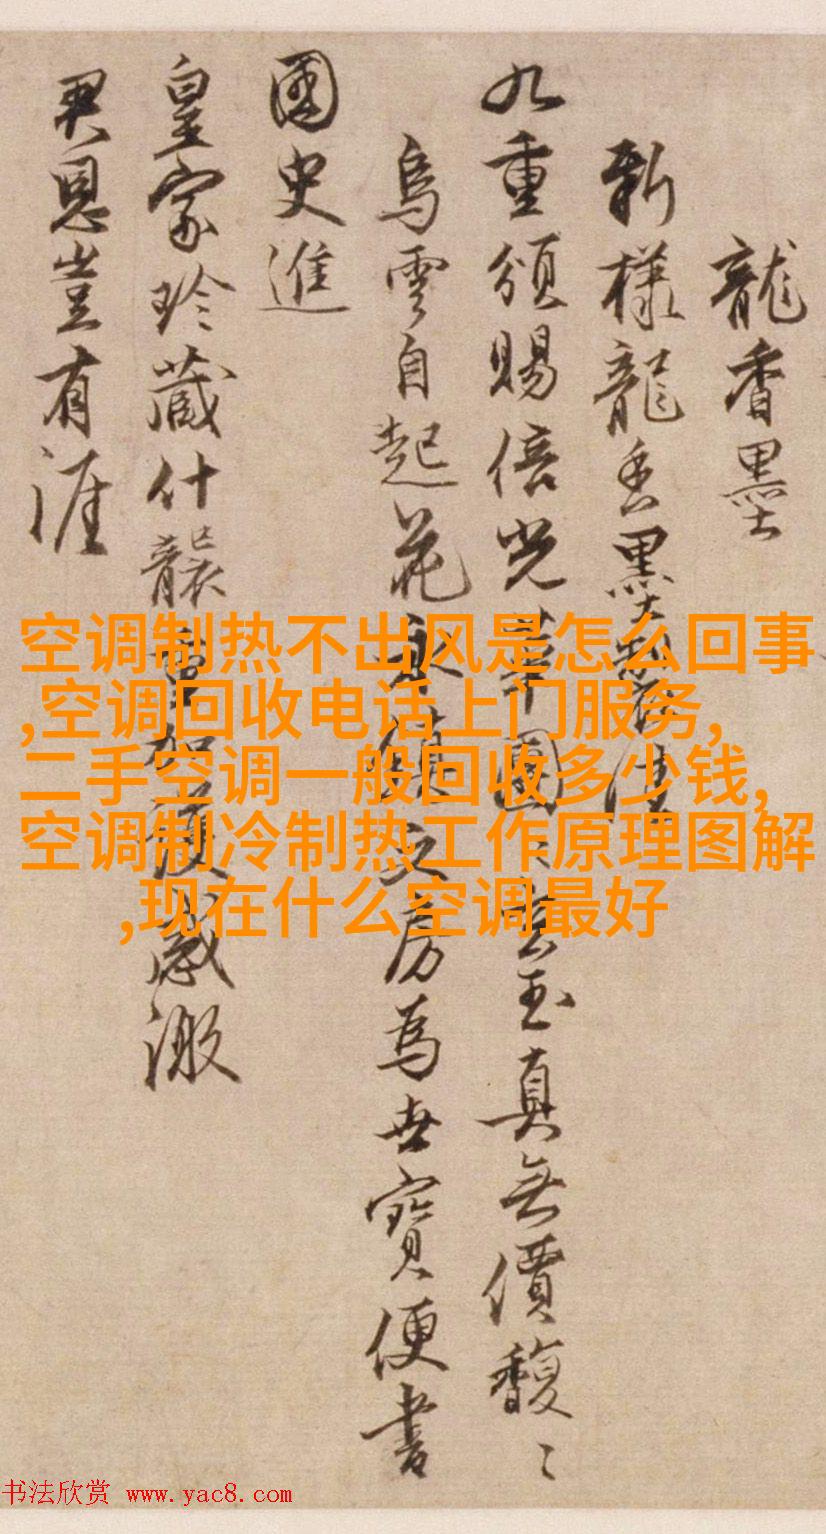 龍香墨
新樣龍香墨製佳
九重頒賜倍光華團〻玄玉真無價馥〻
烏雲自起花永鎮文房為世寶便書
國史進
皇家珍藏什襲重加護感激
君恩豈有涯
空调制热不出风是怎么回事
,空调回收电话上门服务,
二手空调一般回收多少钱,
空调制冷制热工作原理图解
,现在什么空调最好
书法欣赏 www.yac8.com